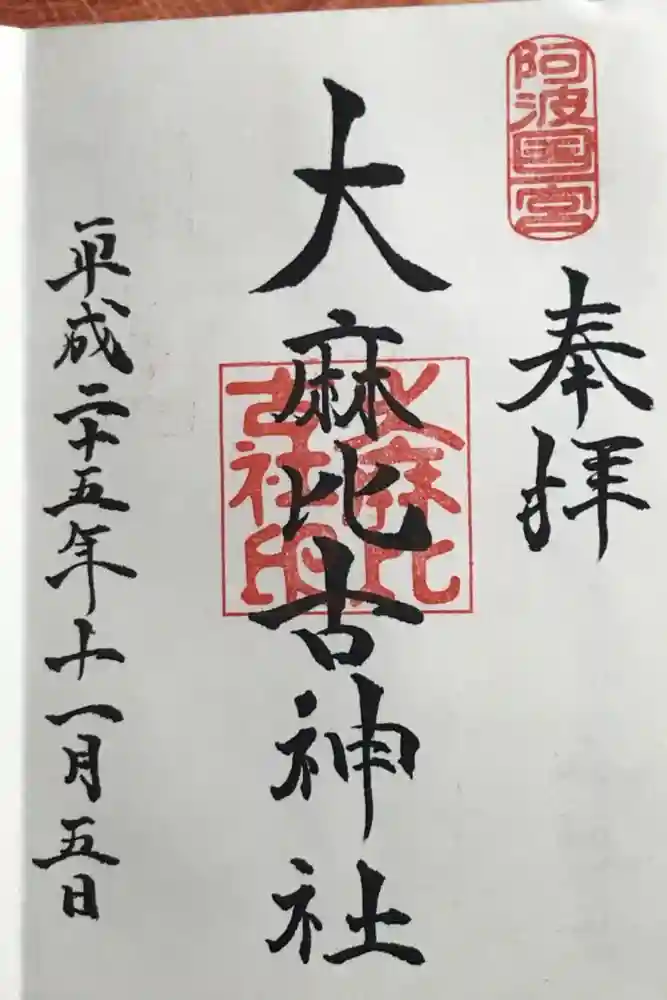 阿波国一宮
奉拝
大麻比古神社
大麻比
古社印
平成二十五年十一月五日